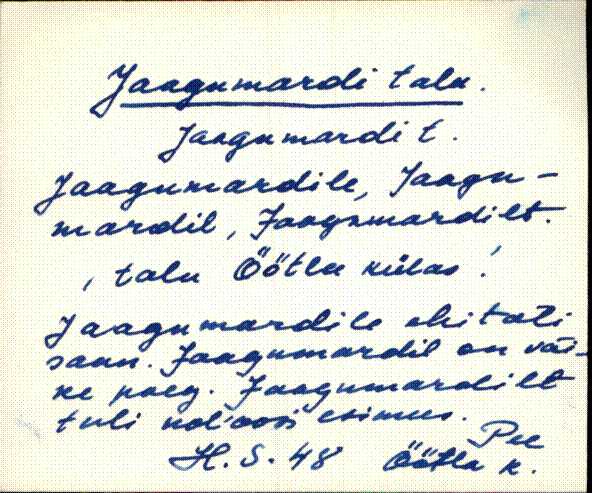 Jaagumardi talu.
Jaagumardi t.
Jaagumardile, Jaagu-
mardil, Jaagumardilt.
, talu Öötla külas!
Jaagumardile ehitati
saun. Jaagumardil on väi-
ke poeg. Jaagumardilt
tuli esimus.
H. S. 48 Pee
Öötla k.